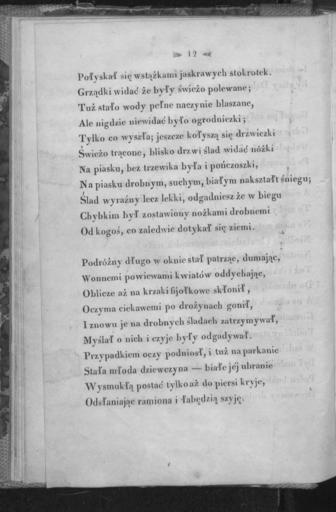 12
Połyskał się wstążkami jaskrawych stokrotek.
Grządki widać że były świeżo polewane;
Tuż stało wody pełne naczynie blaszane,
Ale nigdzie niewidać było ogrodniczki;
Tylko co wyszła; jeszcze kołyszą się drzwiczki
Świeżo trącone, blisko drzwi ślad widać nóżki
Na piasku, bez trzewika była i pończoszki,
Na piasku drobnym, suchym, białym nakształt śniegu;
Ślad wyraźny lecz lekki, odgadniesz że w biegu
Chybkim był zostawiony nóżkami drobnemi
Od kogoś, co zaledwie dotykał się ziemi.
Podróżny długo w oknie stał patrząc, dumając,
Wonnemi powiewami kwiatów oddychając,
Oblicze aż na krzaki fijołkowe skłonił,
Oczyma ciekawemi po drożynach gonił,
I znowu je na drobnych śladach zatrzymywał,
Myślał o nich i czyje były odgadywał.
Przypadkiem oczy podniosł, i tuż na parkanie
Stała młoda dziewczyna — białe jéj ubranie
Wysmukłą postać tylko aż do piersi kryje,
Odsłaniając ramiona i łabędzią szyję.